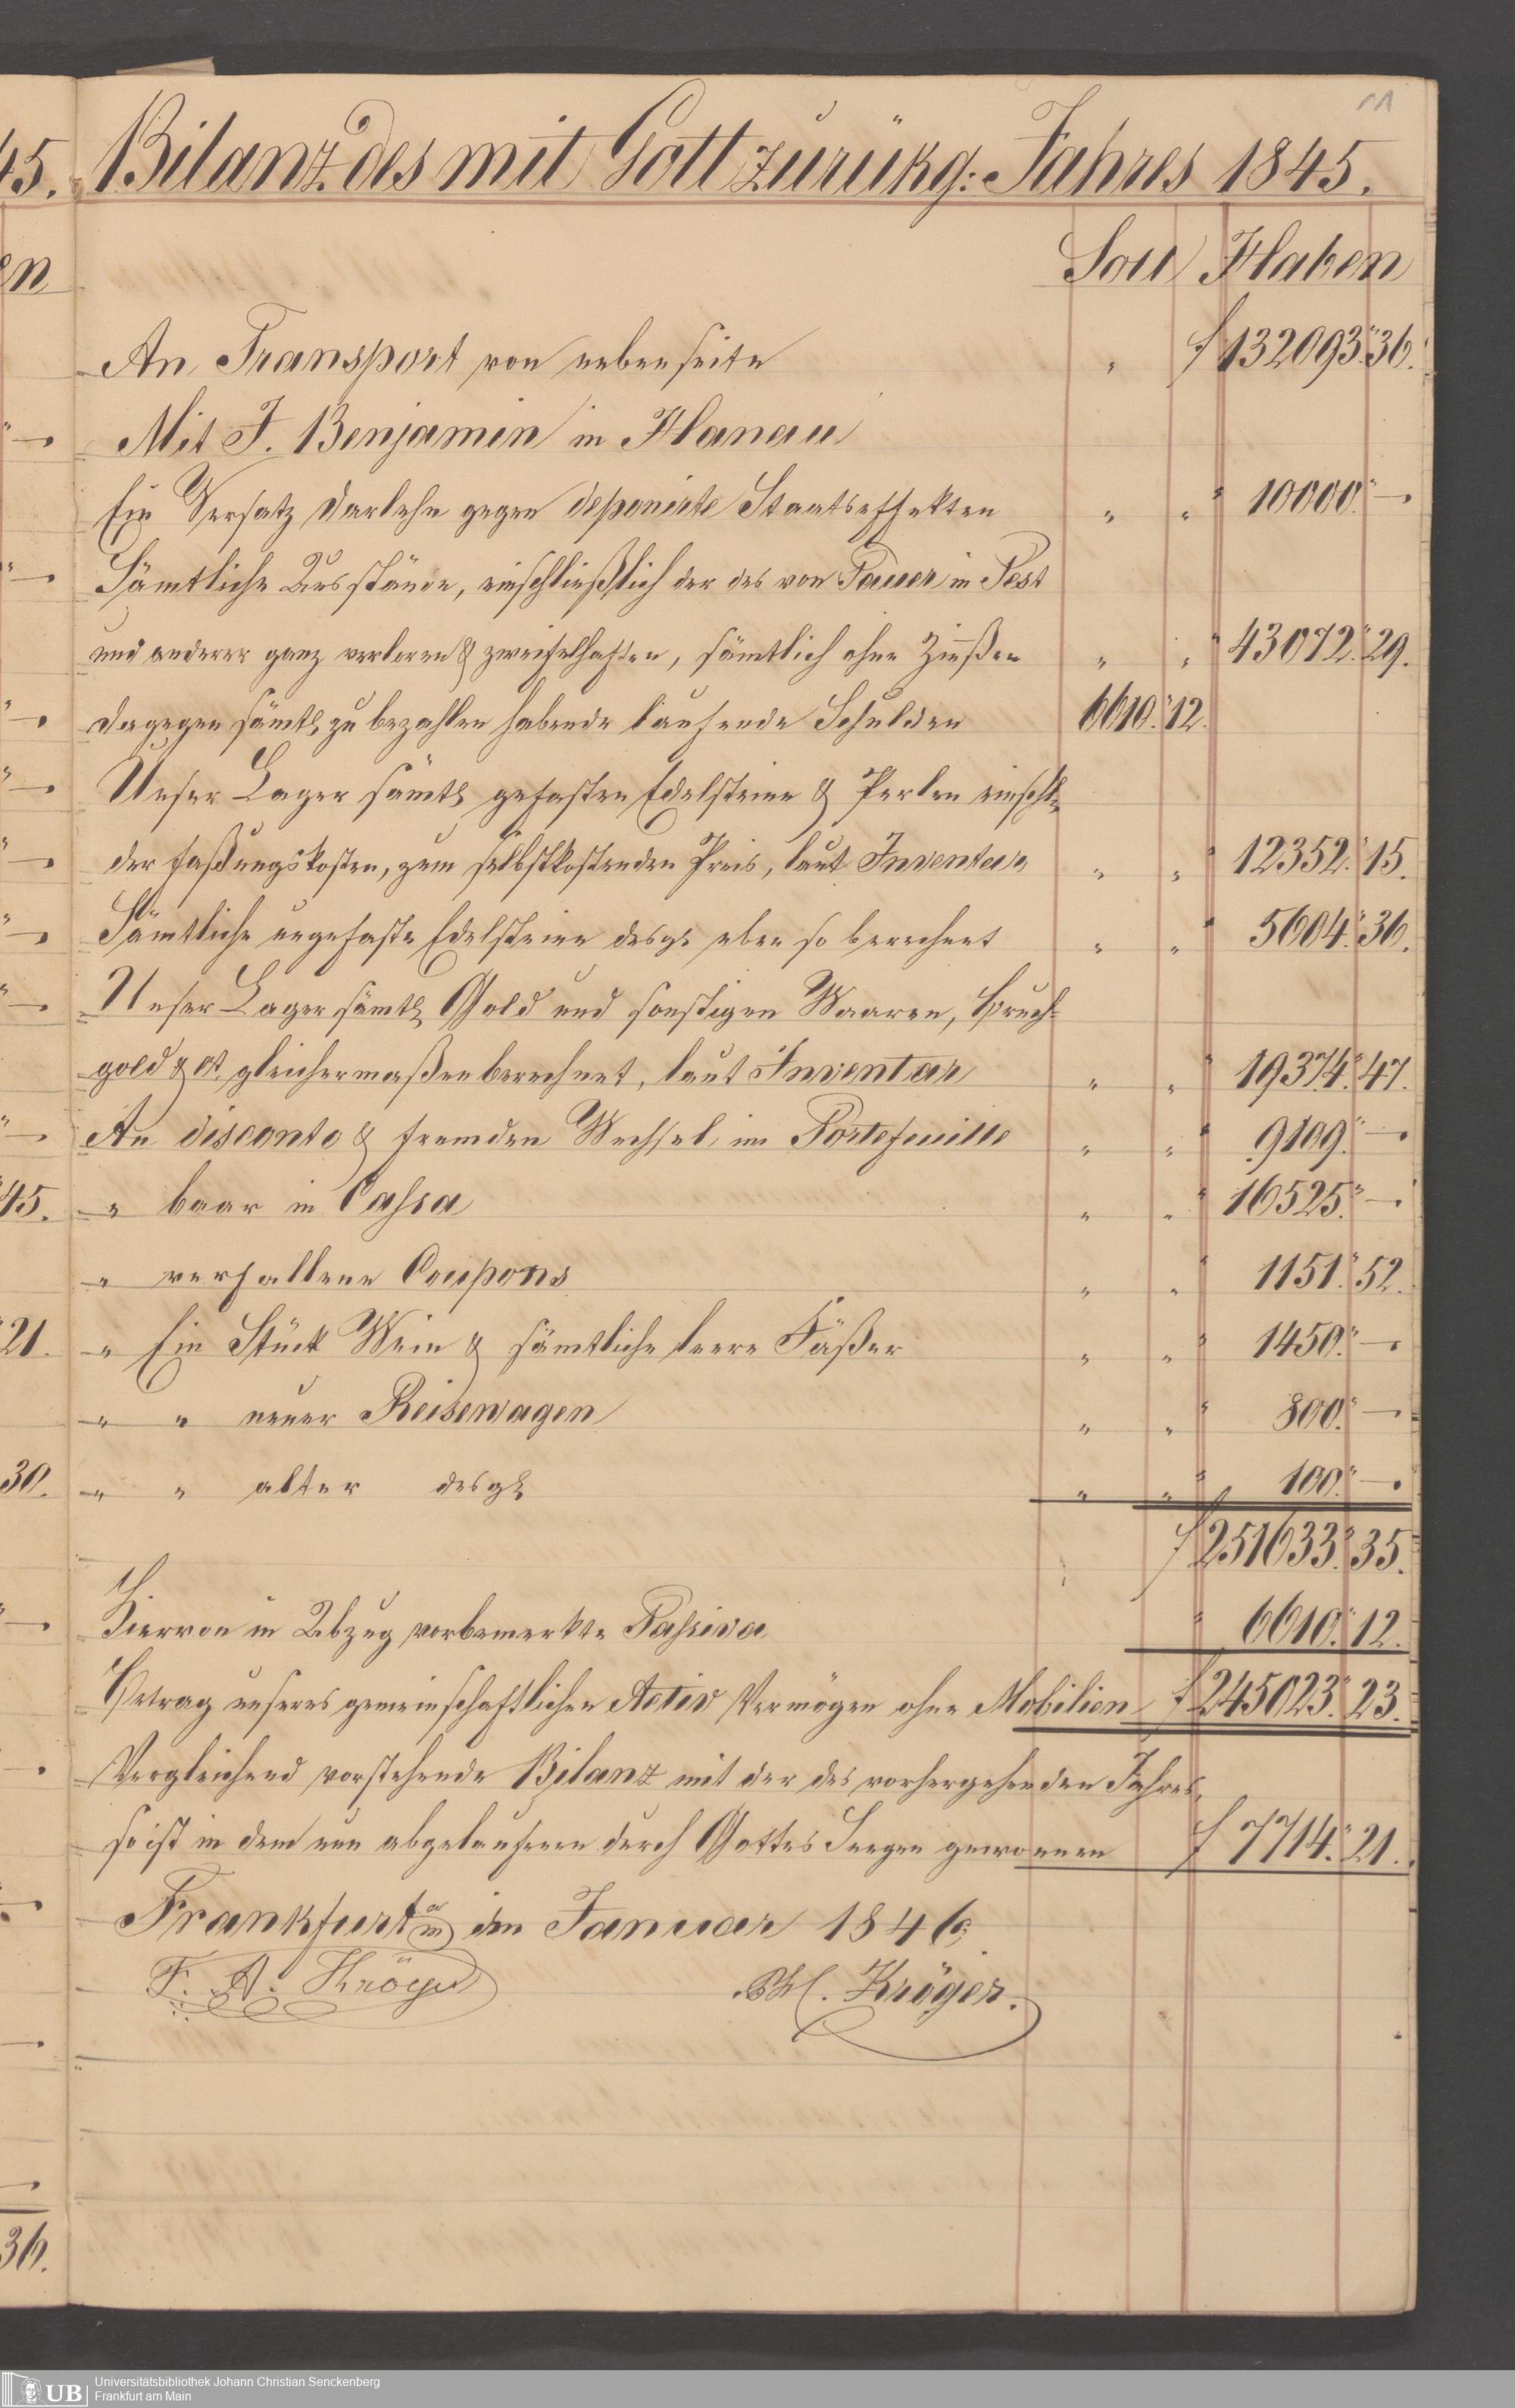 11
45. Bilanz des mit Gott zurükg: Jahres 1845.
en
Soll Haben
An Transport von nebenseite " f 132093." 36.
Mit J. Benjamin in Hanau
Ein Versatz Darlehn gegen deponirte Staatseffekten " " " 10000." —
Sämtliche Ausstände, einschließlich der des von Pauer in Pest
und anderer ganz verloren & zweifelhaften, sämtlich ohne Zinßen " " " 43072." 29.
dagegen sämtl zu bezahlen habende laufende Schulden 6610." 12.
Unser Lager sämtl gefasten Edelsteine & Perlen einschl
der Faßungskosten, zum selbstkostenden Preis, laut Inventar " " " 12352." 15.
Sämtliche ungefaste Edelsteine desgl eben so berechnet " " " 5604." 36.
Unser Lager sämtl Gold und sonstigen Waaren, Bruch-
gold & ct. gleichermaßen berechnet, laut Inventar " " " 19374." 47.
An disconto & fremden Wechsel im Portefeuille " " " 9109." —
45. " baar in Cassa " " " 16525." —
" verfallene Coupons " " " 1151." 52.
21. " Ein Stück Wein & sämtliche leere Fäßer " " " 1450." —
" " neuer Reisewagen " " " 800." —
30. " " alter desgl " " " 100." —
f 251633." 35.
Hiervon in Abzug vorbemerkte Passiva " 6610." 12.
Betrag unseres gemeinschaftlichen Activ Vermögen ohne Mobilien f 245023." 23.
Vergleichend vorstehende Bilanz mit der des vorhergehenden Jahres,
so ist in dem nun abgelaufenen durch Gottes Seegen gewonnen f 7714." 21.
Frankfurt a/m den Januar 1846
F. A. Kröger H. Kröger.
36.
UB Universitätsbibliothek Johann Christian Senckenberg
Frankfurt am Main